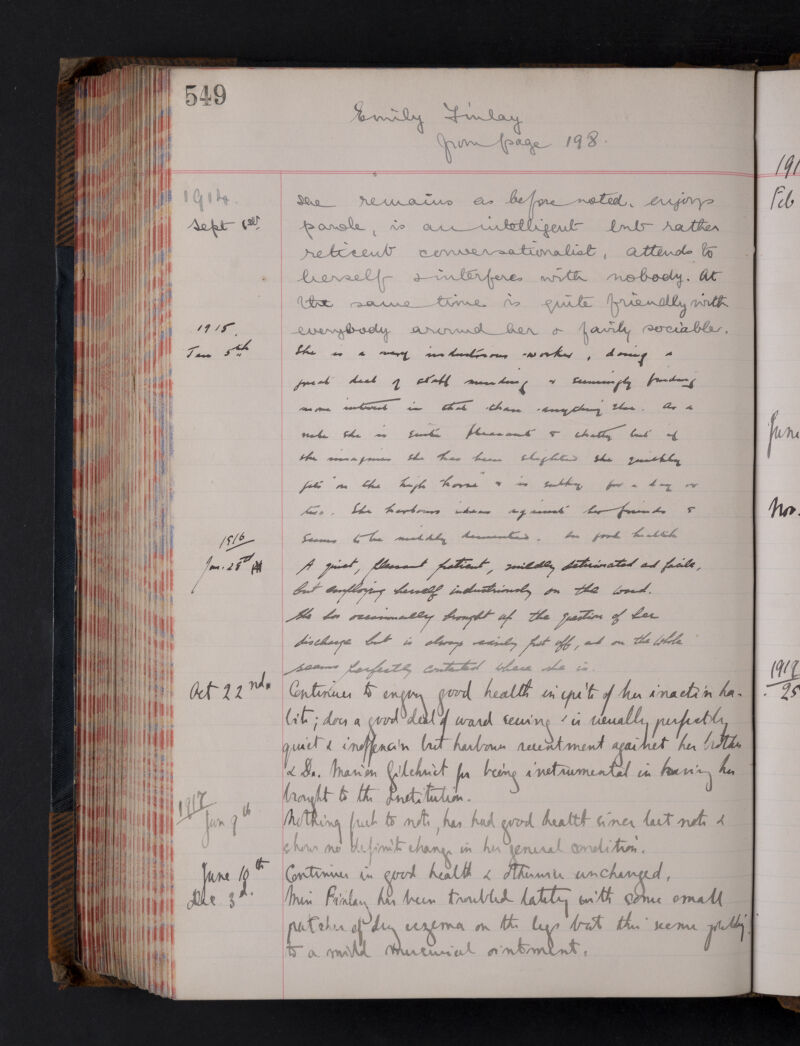 549
Emily Finlay
from page 198.
1914.
Sept 1st.
She remains as before noted, enjoys
parole, is an intelligent but rather
reticent conversationalist, attends to
herself & interferes with nobody. At
the same time is quite friendly with
everybody around her & fairly sociable.
1915.
Jan 5th
She is a very industrious worker, doing a
great deal of staff mending & seemingly finding
more interest in that than anything else. As a
rule she is quite pleasant & chatty but if
she imagines she has been slighted she quickly
gets "on the high horse" & is sulky for a day or
two. She harbours ideas against her friends &
seems to be mildly demented. In good health
1916
Jan. 28th
A quiet, pleasant patient, mildly deteriorated and facile,
but employing herself industriously on the ward.
She has occasionally brought up the question of her
discharge but is always easily put off, and on the whole
seems perfectly contented where she is.
Oct 22nd.
Continues to enjoy good health in spite of her inactive ha-
bits; does a good deal of ward sewing & is usually perfectly
quiet & inoffensive but harbours resentment against her brother
& Dr. Marion Gilchrist for being instrumental in having her
brought to the Institution.
1917
Jan 9th
Nothing fresh to note, has had good health since last note &
shows no definite change in her general condition.
June 10th
Continues in good health & otherwise unchanged.
Dec 3d.
Miss Finlay has been troubled lately with some small
patches of dry eczema on the legs but this seems yielding
to a mild mercurial ointment.
191
Feb
June
Nov.
191
25